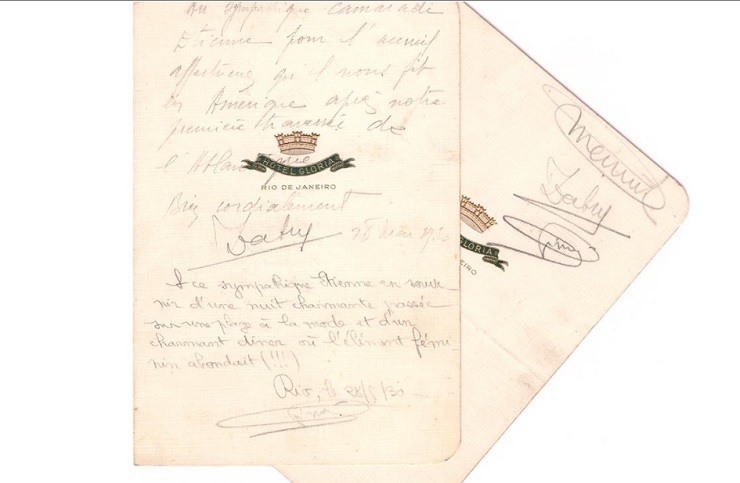 Au sympathique camarade
Etienne pour l'accueil
affectueux qu'il nous fit
en Amérique après notre
première traversée de
l'Atlantique
HOTEL GLORIA
RIO DE JANEIRO
Bien cordialement
Dabry 28 mai 1930
A ce sympathique Etienne en souve-
nir d'une nuit charmante passée
sur une plage à la mode et d'un
charmant diner où l'élément fémi-
nin abondait (!!!)
Rio, le 28/5/30
Gimié
Mermoz
Dabry
Gimié
GLORIA
EIRO